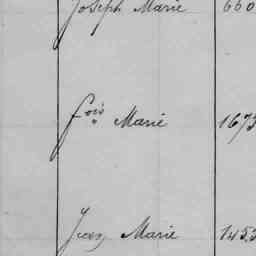 Joseph Marie 660
fois Marie 1673
Jean Marie 1453